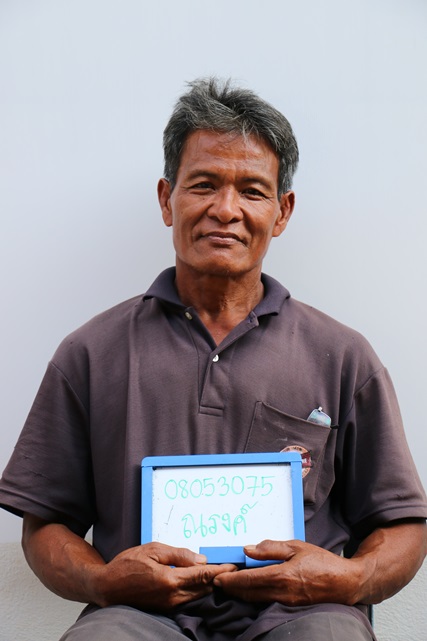 08053075
ณรงค์